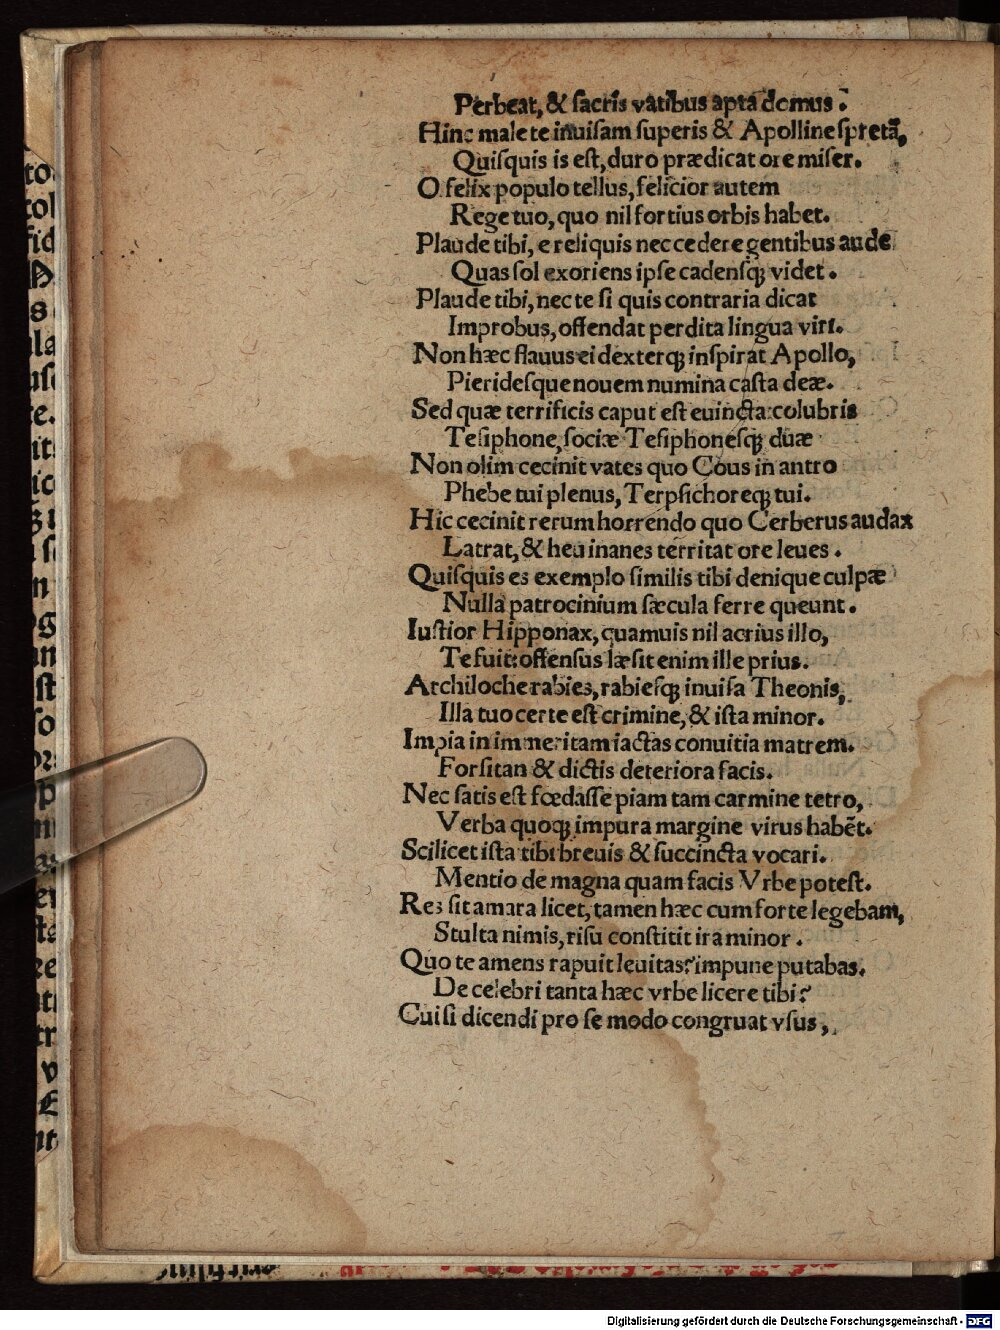 Perbeat, & ſacris vatibus apta domus.
Hinc male te inuiſam ſuperis & Apolline ſpretā,
Quiſquis is eſt, duro prædicat ore miſer.
O felix populo tellus, felicior autem
Rege tuo, quo nil fortius orbis habet.
Plaude tibi, e reliquis nec cedere gentibus aude
Quas ſol exoriens ipſe cadenſꝙ videt.
Plaude tibi, nec te ſi quis contraria dicat
Improbus, offendat perdita lingua viri.
Non hæc flauus ei dexterꝙ inſpirat Apollo,
Pierideſque nouem numina caſta deæ.
Sed quæ terrificis caput eſt euincta colubris
Teſiphone, ſociæ Teſiphoneſꝙ duæ
Non olim cecinit vates quo Cous in antro
Phebe tui plenus, Terpſichoreꝙ tui.
Hic cecinit rerum horrendo quo Cerberus audax
Latrat, & heu inanes territat ore leues.
Quiſquis es exemplo ſimilis tibi denique culpæ
Nulla patrocinium ſæcula ferre queunt.
Iuſtior Hipponax, quamuis nil acrius illo,
Te fuit: offenſus læſit enim ille prius.
Archiloche rabies, rabieſꝙ inuiſa Theonis,
Illa tuo certe eſt crimine, & iſta minor.
Impia in immeritam iactas conuitia matrem.
Forſitan & dictis deteriora facis.
Nec ſatis eſt fœdaſſe piam tam carmine tetro,
Verba quoꝙ impura margine virus habēt.
Scilicet iſta tibi breuis & ſuccincta vocari.
Mentio de magna quam facis Vrbe poteſt.
Res ſit amara licet, tamen hæc cum forte legebam,
Stulta nimis, riſu conſtitit ira minor.
Quo te amens rapuit leuitas? impune putabas.
De celebri tanta hæc vrbe licere tibi?
Cui ſi dicendi pro ſe modo congruat vſus,
Digitalisierung gefördert durch die Deutsche Forschungsgemeinschaft - DFG